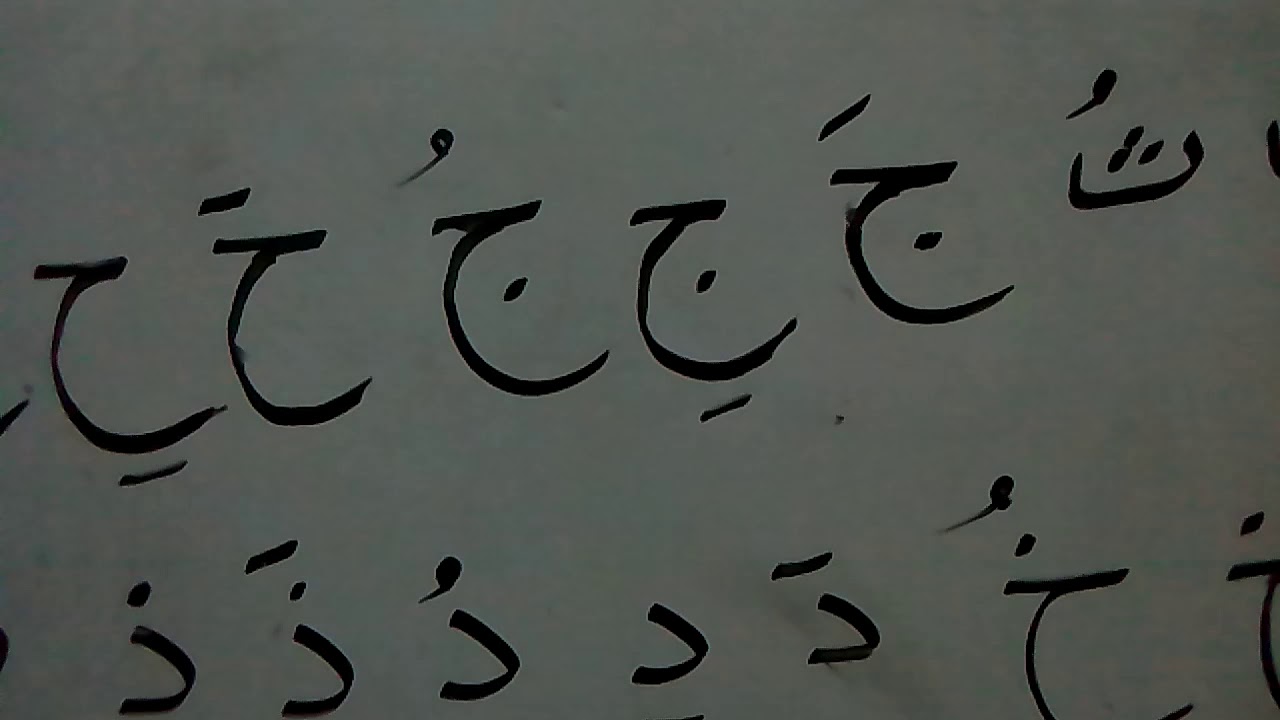 ثُ جَ جِ جُ حَ حِ
خُ دَ دِ دُ ذَ